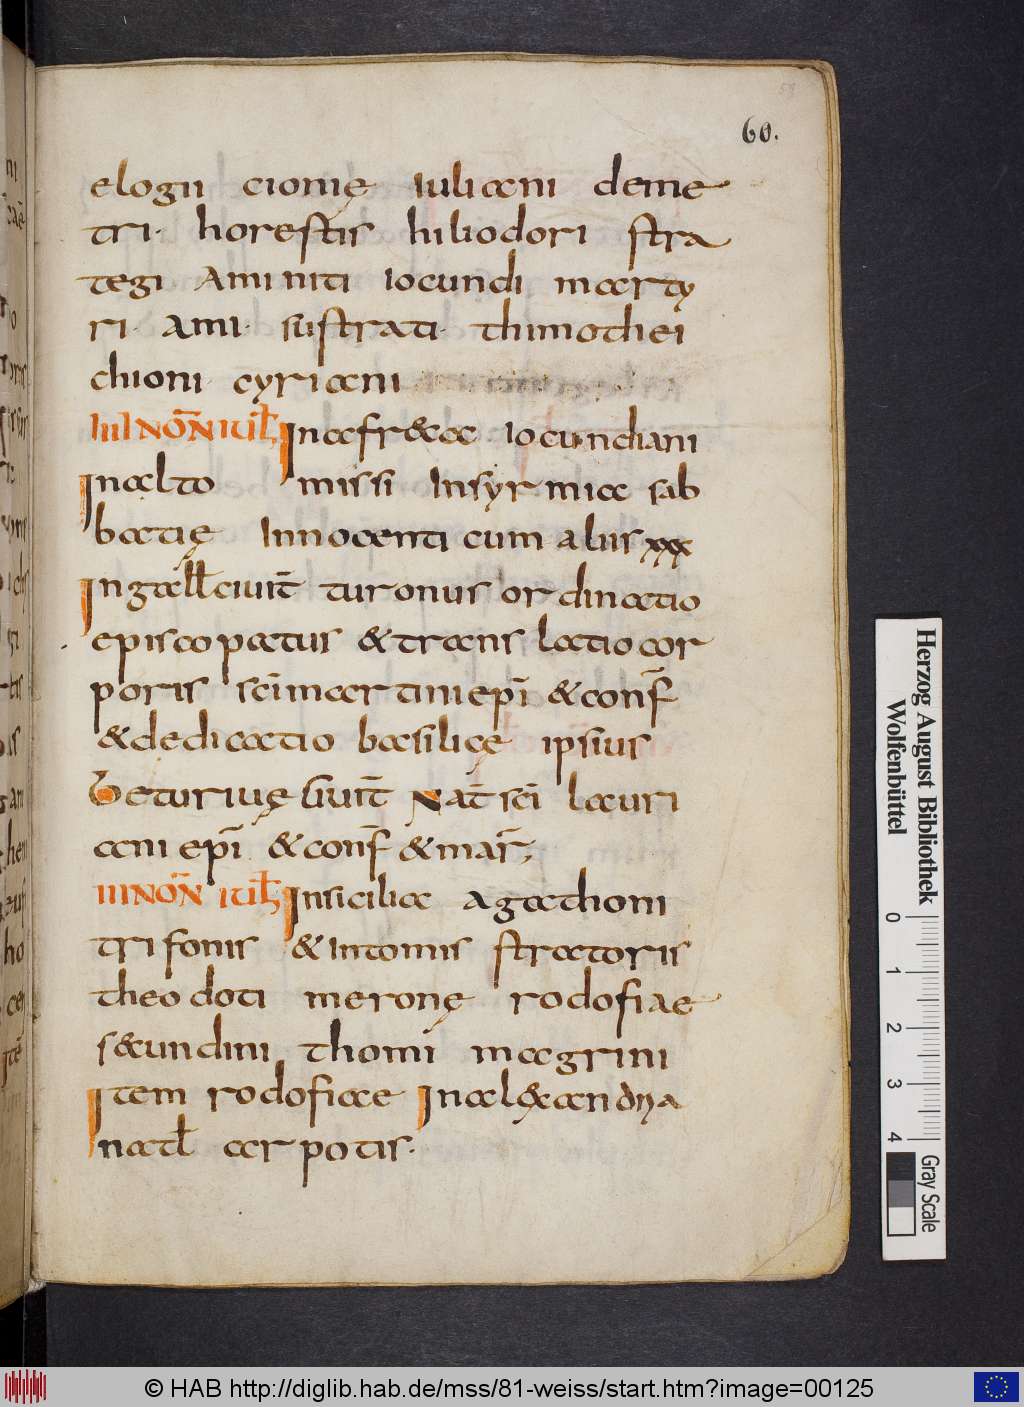 60.
elogii cionię iuliani deme
tri· horestis hiliodori stra
tegi Aminiti iocundi marty
ri· Ami· sustrati· thimothei
chioni cyriani
IIII NŌN IUL̄ Inafr&aa iocundiani
Inalto missi Insyrmia sab
batię Innocenti cum aliis xxx
Ingall̄ civit̄ turonus ordinatio
episcopatus & translatio cor
poris sc̄i martini ep̄i & conf̄
& dedicatio basilicę ipsius
Beturiuę Siuit̄ Nat̄ sc̄i lauri
ani ep̄i & conf̄ & mar̄;
III NŌN IUL̄ Insicilia agathoni
trifonis & Intomis stratoris
theodoti meronę rodofiae
s&undini thomi magrini
Item rodofiae Inalęxandria
nat̄l arpotis·
Herzog August Bibliothek
Wolfenbüttel
0 1 2 3 4
Gray Scale
© HAB http://diglib.hab.de/mss/81-weiss/start.htm?image=00125